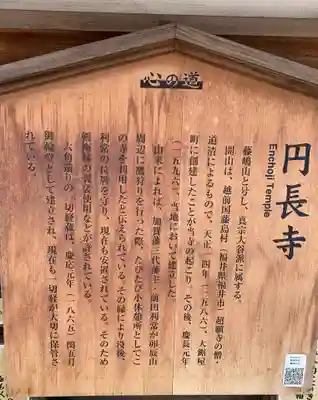 心の道
円長寺
Enchoji Temple
藤嶋山と号し、真宗大谷派に属する。
開山は、越前国藤島村（福井県福井市）超願寺の僧・
道清によるもので、天正一四年（一五八六）、大鋸屋
町に創建したことが当寺の起こり。その後、慶長元年
（一五九六）、当地において建立した。
由来によれば、加賀藩三代藩主・前田利常が卯辰山
周辺に鷹狩りを行った際、たびたび小休憩所としてこ
の寺を利用したと伝えられている。その縁により没後、
利常の位牌を守り、現在も安置されている。そのため
剣梅鉢の獨衣使用などが許されている。
六角造りの一切経蔵は、慶応元年（一八六五）閏五月
御輪堂として建立され、現在も一切経が大切に保管さ
れている。